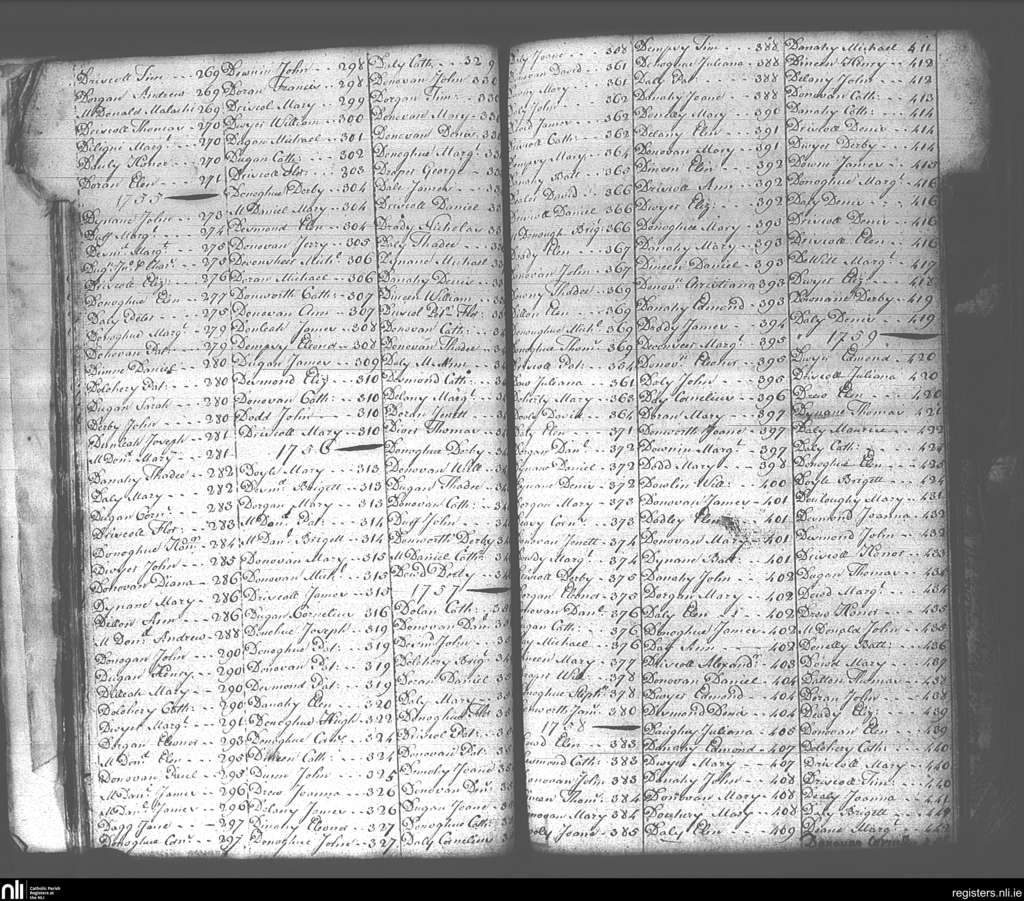 Driscoll Tim - - - 269
Dorgan Andrew 269
McDonald Malachi 269
Driscoll Thomas - - 270
Daly Honor - - 270
Doran Elen - - 271
1755
Dynane John - - 273
Duff Margt - - 274
Driscoll Eliz: - - 276
Donoghue Elen - - 277
Daly Peter - - 275
Donoghue Margt - 279
Donovan Pat: - - 279
Dinne Daniel - - 280
Dolchery Pat: - - 280
Dugan Sarah - - 280
Derby John - - 280
Dunleah Joseph - - 281
McDonl Mary - - 281
Danahy Thadee - - 282
Daly Mary - - 282
Dugan Cornl - - 283
Driscoll Flor: - - 283
Donoghue Honr - - 284
Dwyer John - - 285
Donovan Diana - - 286
Dynane Mary - - 286
Dillon Ann - - 286
McDonl Andrew - 288
Donogan John - - 290
Dugan Henry - - 290
Dulleah Mary - - 290
Dolchery Cath: - - 290
Dwyer Margt - - 291
Dorgan Eleonor - - 293
McDonl Elen - - 295
Donovan Danl - - 295
McDanl James - - 296
McDanl James - - 296
Dagg Jane - - 297
Donoghue Cornl - - 297
Downin John - - - 298
Doran Francis - - 298
Driscol Mary - - - 299
Dwyer William - - 300
Dugan Michael - - 301
Dugan Cath: - - - 302
Driscoll Flor: - - - 303
Donoghue Derby - - 304
McDaniel Mary - - 304
Desmond Elen - - 304
Donovan Jerry - - 305
Devonsheer Michl - - 306
Doran Michael - - 306
Donworth Cath: - - 307
Donovan Ann - - 307
Donleah James - - 308
Dempsy Elenor - - 308
Dugan James - - 309
Desmond Eliz: - - 310
Donovan Cath: - - 310
Dodd John - - 310
Driscoll Mary - - 310
1756
Doyle Mary - - 313
Dermt Brigett - - 313
Dorgan Mary - - 313
McDanl Pat: - - 314
McDanl Brigett - - 314
Donovan Mary - - 315
Donovan Michl - - 315
Driscoll James - - 315
Dugan Cornelius - 316
Donohue Joseph - - 319
Donoghue Pat: - - 319
Donovan Pat: - - 319
Desmond Pat: - - 319
Danahy Elen - - 320
Donoghue Hugh - - 322
Donoghue Corns - - 324
Dineen Cath: - - 324
Dunn John - - 325
Drew Joanna - - 326
Delany James - - 326
Dinahy Elenor - - 327
Donoghue John - - 327
Daly Cath: - - - 329
Donovan John
Dorgan Tim:
Donovan Mary
Donovan Denis
Donoghue Margt
Draper George
Dale James
Driscoll Daniel
Deady Nicholas
Daly Thadee
Dynane Michael
Danahy Denis
Dineen William
Driscol Patr Flor:
Donovan Cath:
Donovan Thadee
Desmond Cath:
Delany Margt
Doran Jenett
Diort Thomas
Donoghue Derby
Donovan Will:
Dugan Thadee
Donovan Cath:
Duff John
Donworth Derby
McDaniel Cathr
Dowd Dolly
1757
Dolan Cath:
Donovan Danl
Devin John
Dolchery Brigt
Doran Daniel
Daly Mary
Donoghue Flor:
Driscol Pat:
Donovan Pat:
Donohy Joane
Donovan Denl
Dugan Joane
Donoghue Cath:
Daly Cornelius
Daly Joane - - - 358
Donovan David - - 361
Mary - - 361
Daly John - - 362
Dowd James - - 362
Cath: - - 362
Dempsy Mary - - 364
Batt - - 365
Daley David - - 366
Driscoll Daniel 366
McDonough Brig: 366
Deady Elen - - 367
Donovan John - - 367
Thadee - - 369
Dillon Elen - - 369
Donoughue Michl - - 369
Donoghue Thoms - - 369
Driscoll Pat: - - 364
Juliana - - 361
Doherty Mary - - 363
Dooly David - - 364
Daly Elen - - 371
Dugan Danl - - 372
Dynane Daniel - - 372
Denis - - 372
Dorgan Mary - - 373
Corns - - 373
Donovan Jenett - - 374
Deady Margt - - 374
Driscoll Derby - - 375
Dorgan Eleonor - - 375
Donovan Danl - - 376
Dugan Cath: - - 376
Daly Michael - - 376
Dineen Mary - - 377
Draper Will: - - 378
Donoghue Stephn - - 378
Donworth Jams - - 380
1758
Dowd Elen - - 383
Desmond Cath: - - 383
Donovan John - - 383
Thoms - - 384
Donogan Mary - - 384
Dooly Joane - - 385
Dempsy Tim - - - 388
Donoghue Juliana - - 388
Daly Pat: - - - 388
Danahy Joane - - - 388
Donelly Mary - - 390
Delany Elen - - 391
Donovan Mary - - 391
Dineen Elen - - 392
Driscoll Ann - - 392
Dwyer Eliz: - - 392
Donoghue Mary - - 393
Danahy Mary - - 393
Dineen Daniel - - 393
Donovn Christiana - 393
Danahy Edmond - 393
Daddy James - - 394
Donovn Eleonor - - 395
Daly John - - 395
Day Cornelius - - 396
Doran Mary - - 397
Donworth Joane - - 397
Downin Margt - - 397
Dodd Mary - - 398
Dowlin Will: - - 400
Donovan James - - 401
Dooley Elen - - 401
Donovan Mary - - 401
Dynane Batt - - 401
Danahy John - - 402
Dorgan Mary - - 402
Daly Elen - - 402
Donoghue James - - 402
Day Ann - - 402
Driscoll Alexandr - - 403
Donovan Daniel - - 404
Dwyer Edmond - - 404
Desmond Denis - - 404
Daughey Juliana - - 405
Danahy Edmond - 407
Dwyer Mary - - 407
Danahy John - - 408
Donovan Mary - - 408
Doughery Mary - - 408
Daly Elen - - - 409
Danahy Michael 411
Dineen Henry - - 412
Delany John - - 412
Donovan Cath: - - 413
Danahy Cath: - - 414
Driscoll Denis - - 414
Dwyer Derby - - 414
Downe James - - 415
Donoghue Margt - 416
Daly Denis - - 416
Driscoll Denis - - 416
Driscoll Elen - - 416
DeWill Margt - - 417
Dwyer Eliz: - - 418
Downane Derby - 419
Daly Denis - - 419
1759
Dwyer Edmond - 420
Driscoll Juliana - 420
Drew Elen - - 420
Dynane Thomas - 421
Daly Maurice - - 422
Daly Cath: - - 424
Donoghue Elen - - 425
Doyle Brigett - - 424
Douloughy Mary - - 431
Desmond Joanna - 432
Desmond John - - 432
Driscoll Honor - - 433
Dugan Thomas - - 433
Dowd Margt - - 434
Drew Honor - - 435
McDonald John - - 435
Donelly Batt: - - 436
Dowd Mary - - 439
Dalton Thomas - - 438
Doran John - - 438
Deady Eliz: - - 439
Donovan Elen - - 439
Dolchery Cath: - - 440
Driscoll Mary - - 440
Driscoll Tim: - - 440
Dealy Joanna - - 441
Daly Brigett - - 444
Deane Margt
Donovan Cornels
nli
Catholic Parish
Registers at
the NLI
registers.nli.ie